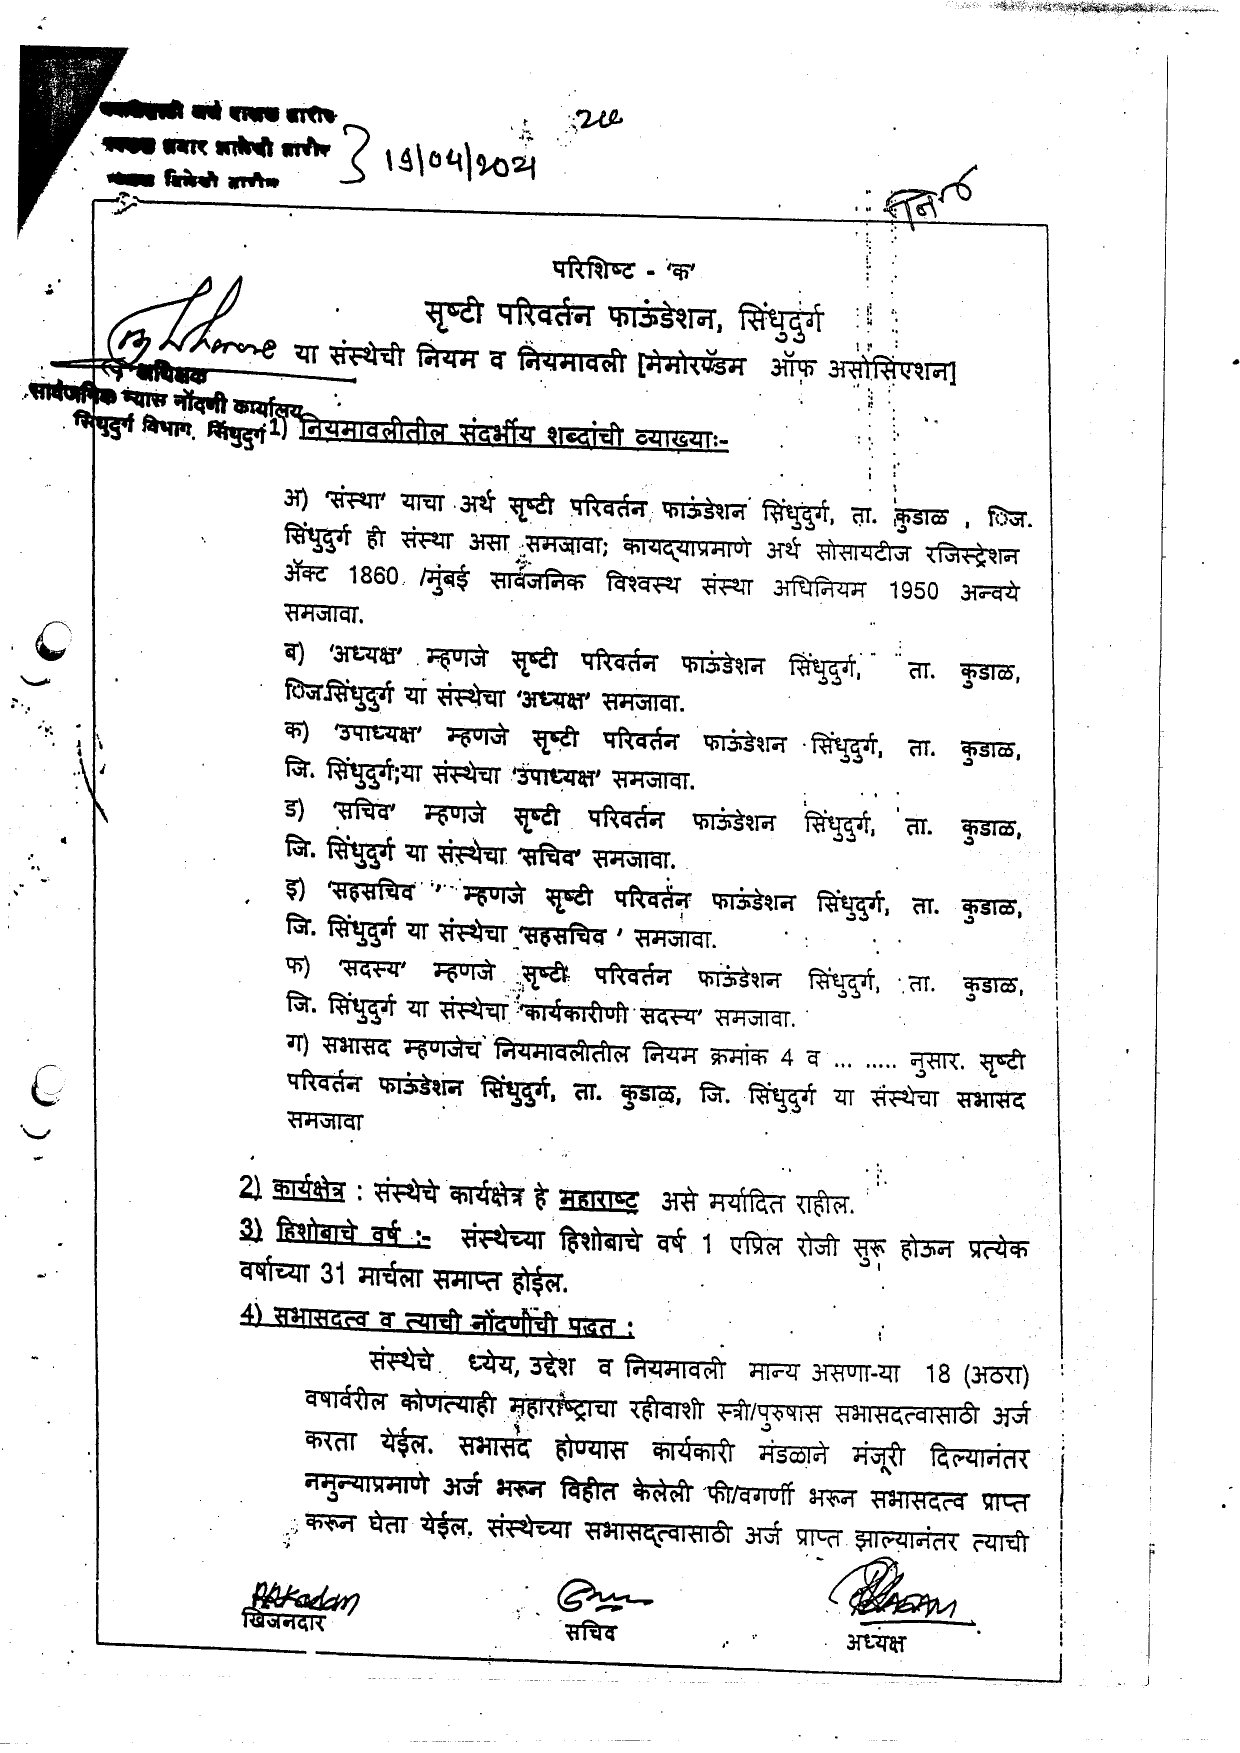 19/04/2021
परिशिष्ट - 'क'
सृष्टी परिवर्तन फाऊंडेशन, सिंधुदुर्ग
या संस्थेची नियम व नियमावली [मेमोरण्डम ऑफ असोसिएशन]
अधिक्षक
सार्वजनिक न्यास नोंदणी कार्यालय
सिंधुदुर्ग विभाग, सिंधुदुर्ग
1) नियमावलीतील संदर्भीय शब्दांची व्याख्याः-
अ) 'संस्था' याचा अर्थ सृष्टी परिवर्तन फाऊंडेशन सिंधुदुर्ग, ता. कुडाळ , जि.
सिंधुदुर्ग ही संस्था असा समजावा; कायद्याप्रमाणे अर्थ सोसायटीज रजिस्ट्रेशन
ॲक्ट 1860 /मुंबई सार्वजनिक विश्वस्थ संस्था अधिनियम 1950 अन्वये
समजावा.
ब) 'अध्यक्ष' म्हणजे सृष्टी परिवर्तन फाऊंडेशन सिंधुदुर्ग, ता. कुडाळ,
जि.सिंधुदुर्ग या संस्थेचा 'अध्यक्ष' समजावा.
क) 'उपाध्यक्ष' म्हणजे सृष्टी परिवर्तन फाऊंडेशन सिंधुदुर्ग, ता. कुडाळ,
जि. सिंधुदुर्ग;या संस्थेचा 'उपाध्यक्ष' समजावा.
ड) 'सचिव' म्हणजे सृष्टी परिवर्तन फाऊंडेशन सिंधुदुर्ग, ता. कुडाळ,
जि. सिंधुदुर्ग या संस्थेचा 'सचिव' समजावा.
इ) 'सहसचिव ' म्हणजे सृष्टी परिवर्तन फाऊंडेशन सिंधुदुर्ग, ता. कुडाळ,
जि. सिंधुदुर्ग या संस्थेचा 'सहसचिव ' समजावा.
फ) 'सदस्य' म्हणजे सृष्टी परिवर्तन फाऊंडेशन सिंधुदुर्ग, ता. कुडाळ,
जि. सिंधुदुर्ग या संस्थेचा 'कार्यकारीणी सदस्य' समजावा.
ग) सभासद म्हणजेच नियमावलीतील नियम क्रमांक 4 व ... ..... नुसार. सृष्टी
परिवर्तन फाऊंडेशन सिंधुदुर्ग, ता. कुडाळ, जि. सिंधुदुर्ग या संस्थेचा सभासद
समजावा
2) कार्यक्षेत्र : संस्थेचे कार्यक्षेत्र हे महाराष्ट्र असे मर्यादित राहील.
3) हिशोबाचे वर्ष :- संस्थेच्या हिशोबाचे वर्ष 1 एप्रिल रोजी सुरू होऊन प्रत्येक
वर्षाच्या 31 मार्चला समाप्त होईल.
4) सभासदत्व व त्याची नोंदणीची पद्धत :
संस्थेचे ध्येय, उद्देश व नियमावली मान्य असणा-या 18 (अठरा)
वर्षावरील कोणत्याही महाराष्ट्राचा रहीवाशी स्त्री/पुरुषास सभासदत्वासाठी अर्ज
करता येईल. सभासद होण्यास कार्यकारी मंडळाने मंजूरी दिल्यानंतर
नमुन्याप्रमाणे अर्ज भरून विहीत केलेली फी/वगर्णी भरून सभासदत्व प्राप्त
करून घेता येईल. संस्थेच्या सभासद्त्वासाठी अर्ज प्राप्त झाल्यानंतर त्याची
खिजनदार
सचिव
अध्यक्ष